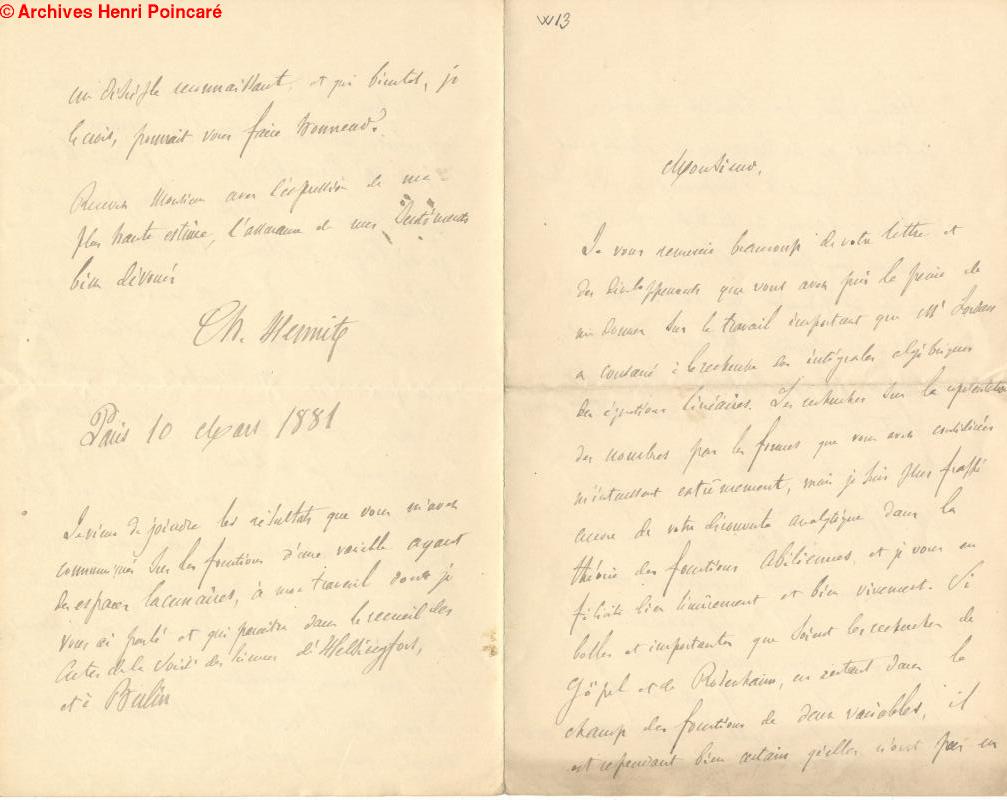 © Archives Henri Poincaré
W13
Monsieur,
Je vous remercie beaucoup de votre lettre et
des développements que vous avez pris la peine de
me donner sur le travail important que Mr Jordan
a consacré à la recherche des intégrales algébriques
des équations linéaires. Les recherches sur la représentation
des nombres par les formes que vous avez continuées
m'intéressent extrêmement, mais je suis plus frappé
encore de votre découverte analytique dans la
théorie des fonctions Abéliennes, et je vous en
félicite bien sincèrement et bien vivement. Si
belles et importantes que soient les recherches de
Göpel et de Rosenhain, en restant dans le
champ des fonctions de deux variables, il
est cependant bien certain qu'elles n'ont pas eu
un disciple reconnaissant, et qui bientôt, je
le crois, pourrait vous faire honneur?
Recevez Monsieur avec l'expression de ma
plus haute estime, l'assurance de mes sentiments
bien dévoués
Ch. Hermite
Paris 10 Mars 1881
Je viens de joindre les résultats que vous m'avez
communiqués sur les fonctions d'une variable ayant
des espaces lacunaires, à mon travail dont je
vous ai parlé et qui paraîtra dans le recueil des
Actes de la Société des Sciences d'Helsingfors,
et à Berlin